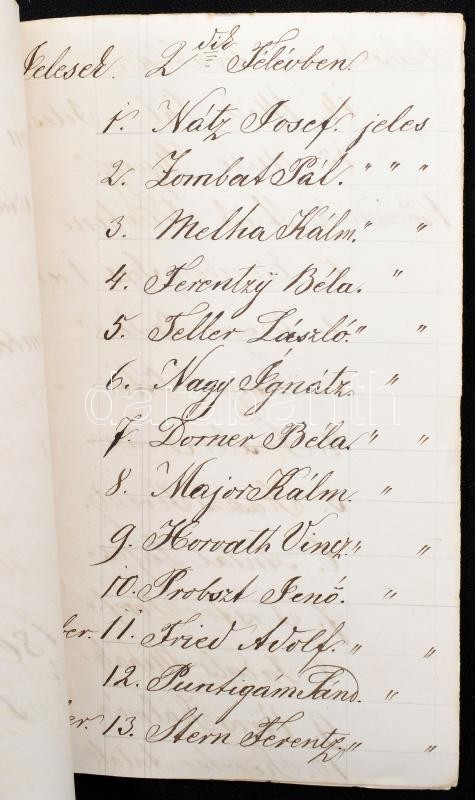 Jelesek. 2dik Félévben.
1. Nátz Josef. jeles
2. Zombat Pál. " " "
3. Melha Kálm. " "
4. Ferentzÿ Béla. "
5. Teller László. " "
6. Nagy Ignátz "
7. Dorner Béla. " "
8. Major Kálm. "
9. Horvath Vincz " "
10. Probszt Jenő. "
ber. 11. Fried Adolf. " "
12. Puntigám Sánd. "
er. 13. Stern Ferentz. " "
darabanth